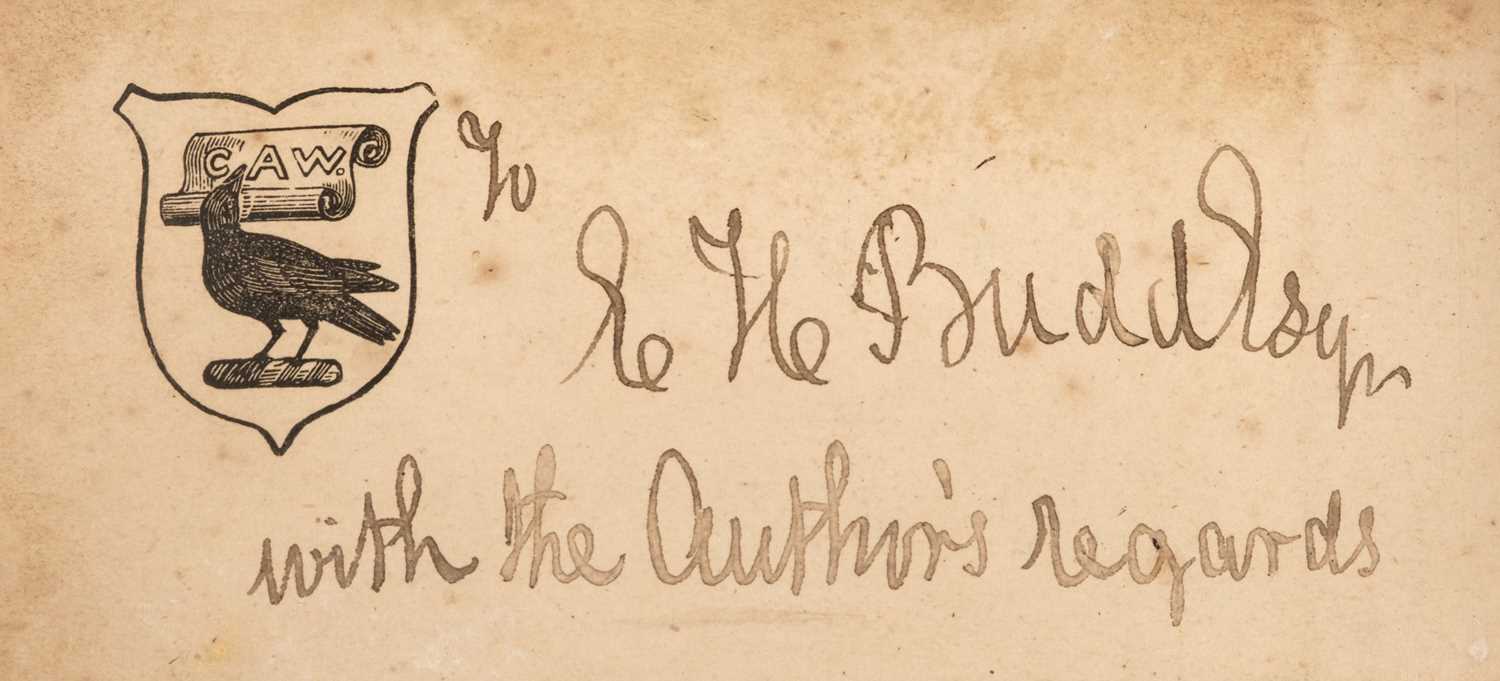 C A W.
To
E H Budd Esqr
with the Author's regards